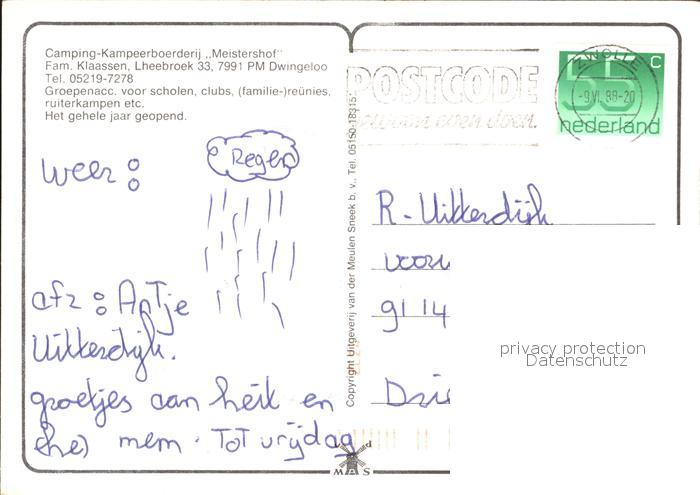 Camping-Kampeerboerderij „Meistershof"
Fam. Klaassen, Lheebroek 33, 7991 PM Dwingeloo
Tel. 05219-7278
Groepenacc. voor scholen, clubs, (familie-)reünies,
ruiterkampen etc.
Het gehele jaar geopend.
weer:
Regen
afz: Antje
Uikkerdijk.
groetjes aan heit en
mem. Tot vrijdag
MAS
Copyright Uitgeverij van der Meulen Sneek b.v., Tel. 05150-18315
POSTCODE
gewoon even doen.
ZWOLLE
-9.VI.88-20
55 C
nederland
R. Uikkerdijk
9114
privacy protection
Datenschutz